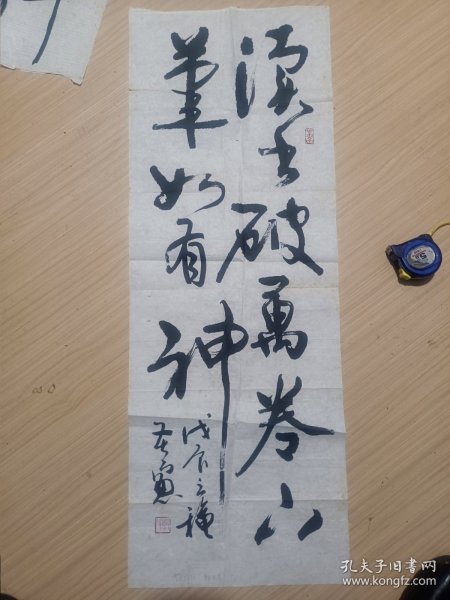 读书破萬卷下
筆如有神
戊辰之秋
孔夫子旧书网
www.kongfz.com